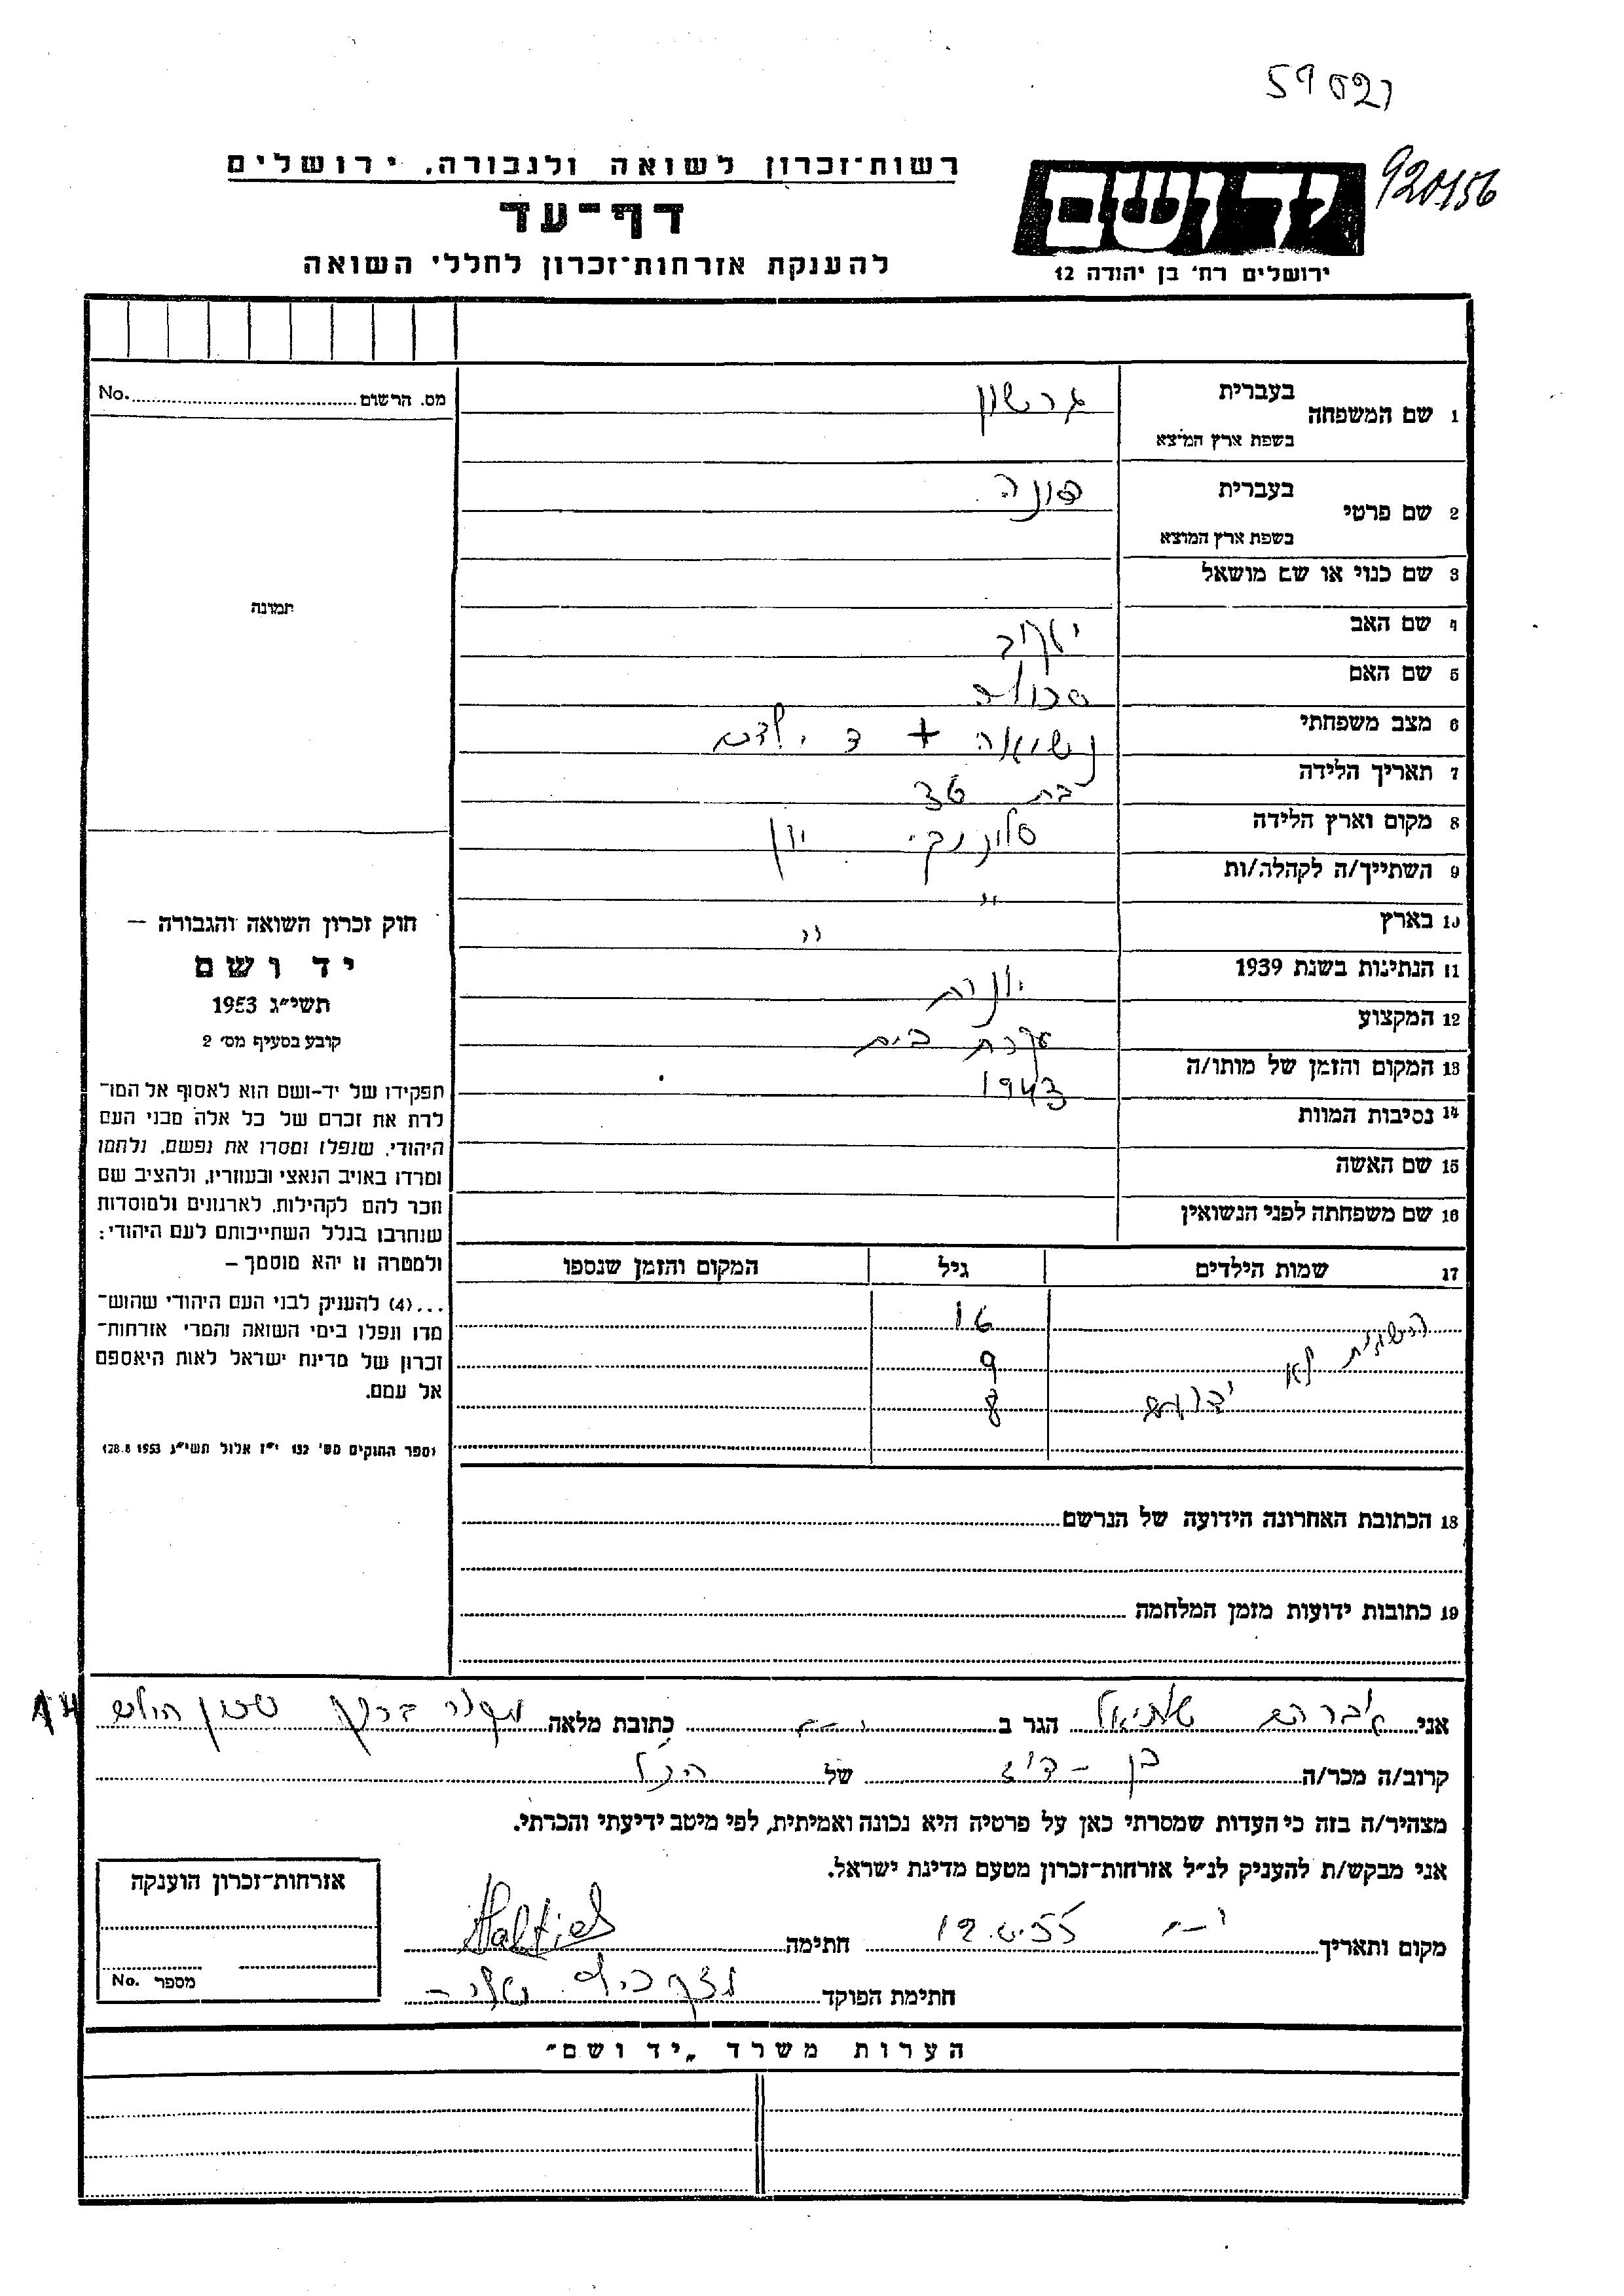 59021
920156
רשות־זכרון לשואה ולגבורה, ירושלים
דף־עד
להענקת אזרחות־זכרון לחללי השואה
ידושם
ירושלים רח׳ בן יהודה 12
מס. הרשום No.
תמונה
1 שם המשפחה בעברית גרשון
בשפת ארץ המוצא
2 שם פרטי בעברית
בשפת ארץ המוצא
3 שם כנוי או שם מושאל
4 שם האב יעקב
5 שם האם
6 מצב משפחתי נשואה + 3 ילדים
7 תאריך הלידה בת 36
8 מקום וארץ הלידה סלוניקי יון
9 השתייך/ה לקהלה/ות "
10 בארץ "
11 הנתינות בשנת 1939 יונית
12 המקצוע עקרת בית
13 המקום והזמן של מותו/ה 1943
14 נסיבות המוות
15 שם האשה
16 שם משפחתה לפני הנשואין
17 שמות הילדים גיל המקום והזמן שנספו
16
9
לא
8
ידועים
חוק זכרון השואה והגבורה –
יד ושם
תשי״ג 1953
קובע בסעיף מס׳ 2
תפקידו של יד-ושם הוא לאסוף אל המו־
לדת את זכרם של כל אלה מבני העם
היהודי, שנפלו ומסרו את נפשם, נלחמו
ומרדו באויב הנאצי ובעוזריו, ולהציב שם
וזכר להם לקהילות, לארגונים ולמוסדות
שנחרבו בגלל השתייכותם לעם היהודי:
ולמטרה זו יהא מוסמך –
...(4) להעניק לבני העם היהודי שהוש־
מדו ונפלו בימי השואה והמרי אזרחות־
זכרון של מדינת ישראל לאות היאספם
אל עמם.
(ספר החוקים מס׳ 132 י״ז אלול תשי״ג 28.8.1953)
18 הכתובת האחרונה הידועה של הנרשם
19 כתובות ידועות מזמן המלחמה
אני אברהם שאלתיאל הגר ב כתובת מלאה שכון
קרוב/ה מכר/ה בן - דוד של הנ״ל
מצהיר/ה בזה כי העדות שמסרתי כאן על פרטיה היא נכונה ואמיתית, לפי מיטב ידיעתי והכרתי.
אני מבקש/ת להעניק לנ״ל אזרחות־זכרון מטעם מדינת ישראל.
מקום ותאריך 12.6.55 חתימה
חתימת הפוקד
אזרחות־זכרון הוענקה
מספר No.
הערות משרד „יד ושם"